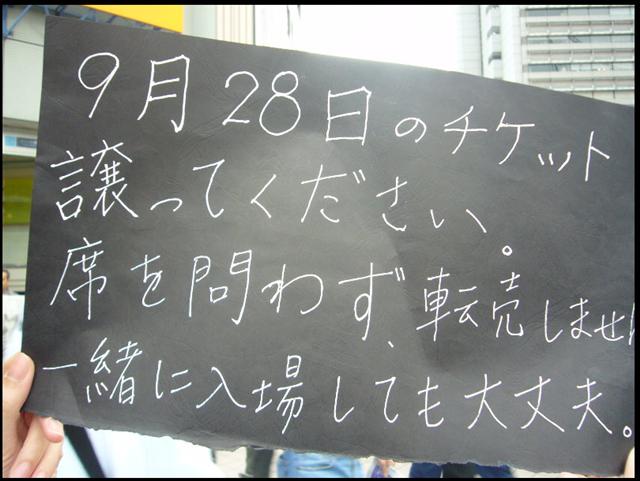 9月28日のチケット
譲ってください。
席を問わず、転売しませ
一緒に入場しても大丈夫。